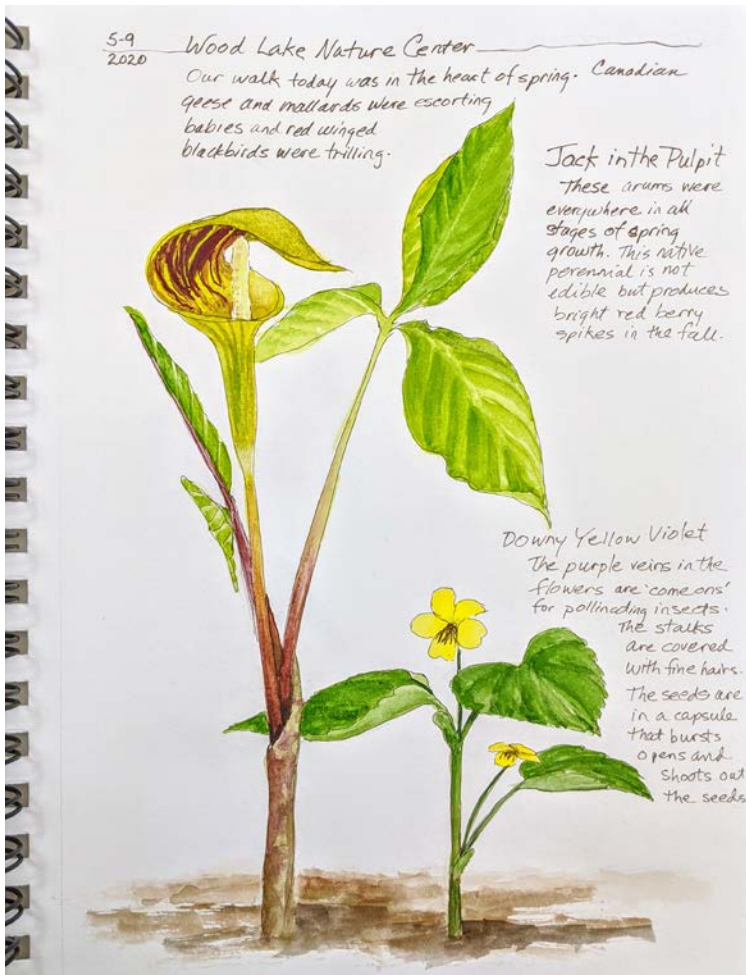 5-9
2020
Wood Lake Nature Center
Our walk today was in the heart of spring. Canadian
geese and mallards were escorting
babies and red winged
blackbirds were trilling.
Jack in the Pulpit
These arums were
everywhere in all
stages of spring
growth. This native
perennial is not
edible but produces
bright red berry
spikes in the fall.
Downy Yellow Violet
The purple veins in the
flowers are 'come ons'
for pollinading insects.
The stalks
are covered
with fine hairs.
The seeds are
in a capsule
that bursts
opens and
shoots out
the seeds